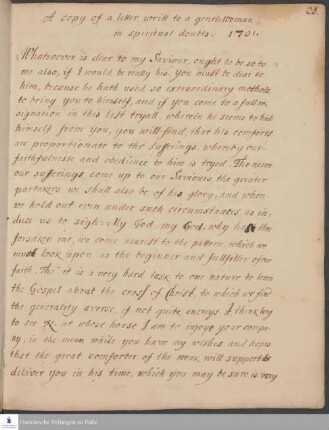 28.
A copy of a letter, writt to a gentlewoman
in spiritual doubts. 1701.
Whatsoever is dear to my Saviour, ought to be so to
me also, if I would be really his. You must be dear to
him, because he hath used so extraordinary methods
to bring you to himself, and if you come to a full re
signation in this last tryall, wherein he seems to hide
himself from you, you will find, that his comforts
are proportionate to the sufferings, whereby our
faithfulness and obedience to him is tryed. The nearer
our sufferings come up to our Saviours, the greater
partakers we shall also be of his glory, and when
we hold out even under such circumstances as in,
duce us to sigh: My God, my God, why hast thou
forsaken me, we come nearest to the pattern, which we
must look upon as the beginner and fullfiller of our
faith. Tho' it is a very hard task to our nature to learn
the Gospel about the cross of Christ, to which we find
the generality averse, if not quite enemys. I thank long
to see at whose house I am to injoye your compa,
ny, in the mean while you have my wishes and hopes
that the great comforter of the weak, will support &
deliver you in his time, which you may be sure is very
Franckesche Stiftungen zu Halle